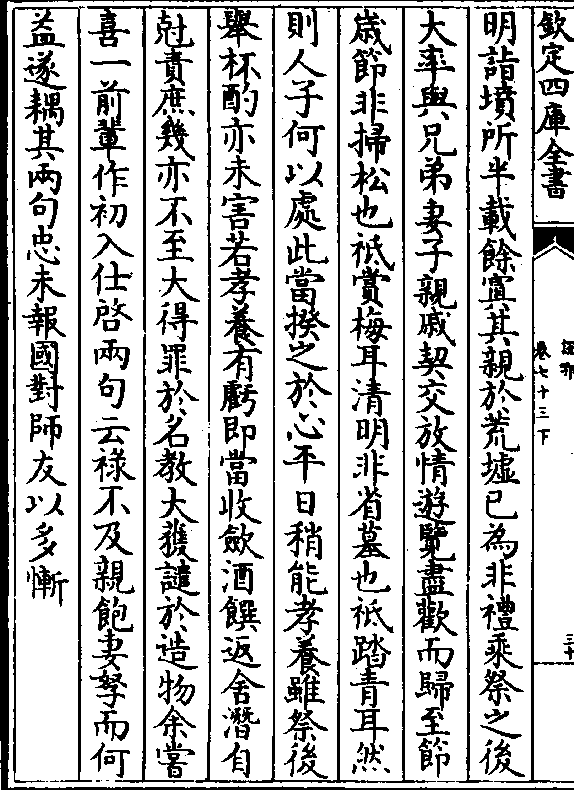 欽定四庫全書
說郛
卷七十三下
三十
明詣墳所半載餘寘其親於荒墟已為非禮乘祭之後
大率與兄弟妻子親戚契交放情遊覽盡歡而歸至節
歳節非掃松也祗賞梅耳清明非省墓也祗踏青耳然
則人子何以處此當揆之於心平日稍能孝養雖祭後
舉杯酌亦未害若孝養有虧即當收歛酒饌返舍潛自
尅責庶幾亦不至大得罪於名教大獲譴於造物余嘗
喜一前輩作初入仕啓兩句云禄不及親飽妻孥而何
益遂耦其兩句忠未報國對師友以多慚